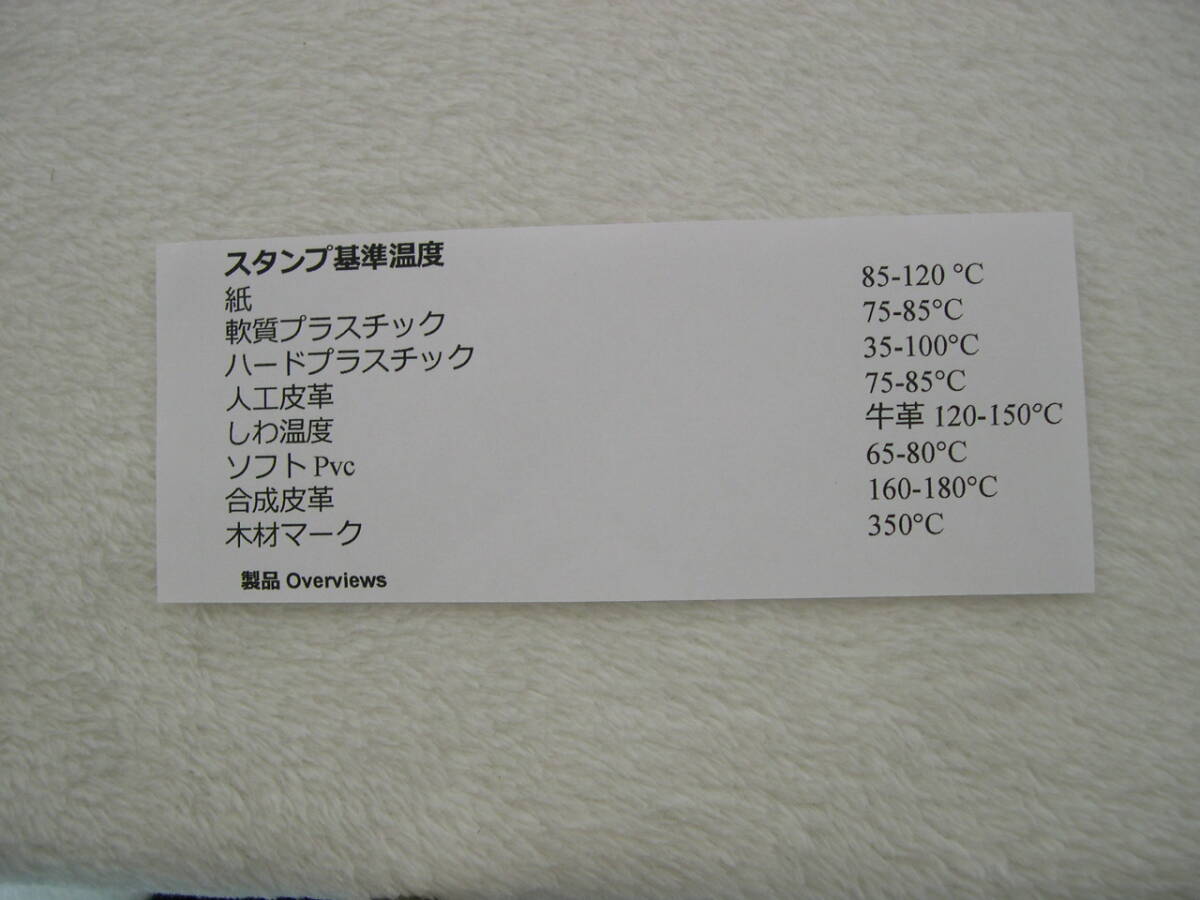 スタンプ基準温度
紙 85-120 °C
軟質プラスチック 75-85°C
ハードプラスチック 35-100°C
人工皮革 75-85°C
しわ温度 牛革 120-150°C
ソフト Pvc 65-80°C
合成皮革 160-180°C
木材マーク 350°C
製品 Overviews